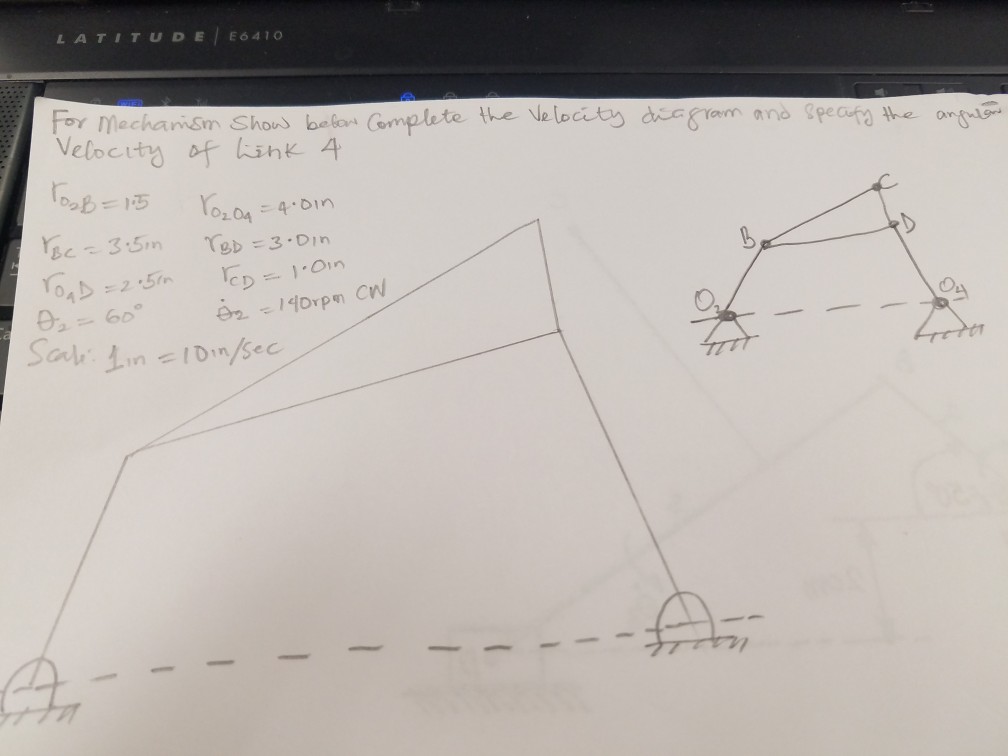 LATITUDE | E6410
For Mechanism Show below Complete the Velocity diagram and Specify the angular
Velocity of Link 4
rO2B = 1.5 rO2O4 = 4.0in
rBC = 3.5in rBD = 3.0in
rO4D = 2.5in rCD = 1.0in
θ2 = 60° θ̇2 = 140rpm CW
Scale: 1in = 10in/sec
C
B
D
O2
O4